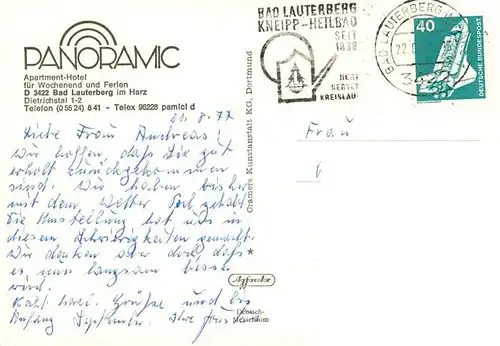 PANORAMIC
Apartment-Hotel
für Wochenend und Ferien
D 3422 Bad Lauterberg im Harz
Dietrichstal 1-2
Telefon (0 55 24) 8 41 - Telex 96228 pamlcl d
21. 8. 77
Liebe Frau Andreas!
Wir hoffen, daß Sie gut
erholt zurückgekommen
sind. Wir haben bisher
mit dem Wetter Pech gehabt.
Die Umstellung hat uns in
diesem Schwierigkeiten gemacht.
Wir denken aber doch daß
es nun langsam besser
wird.
herzl. Grüße und bis
Anfang September. Ihre
Cramers Kunstanstalt KG, Dortmund
Agfacolor
Deutsch-
BAD LAUTERBERG
KNEIPP-HEILBAD
SEIT
1839
HERZ
NERVEN
KREISLAUF
BAD LAUTERBERG
22.
40
DEUTSCHE BUNDESPOST
Frau